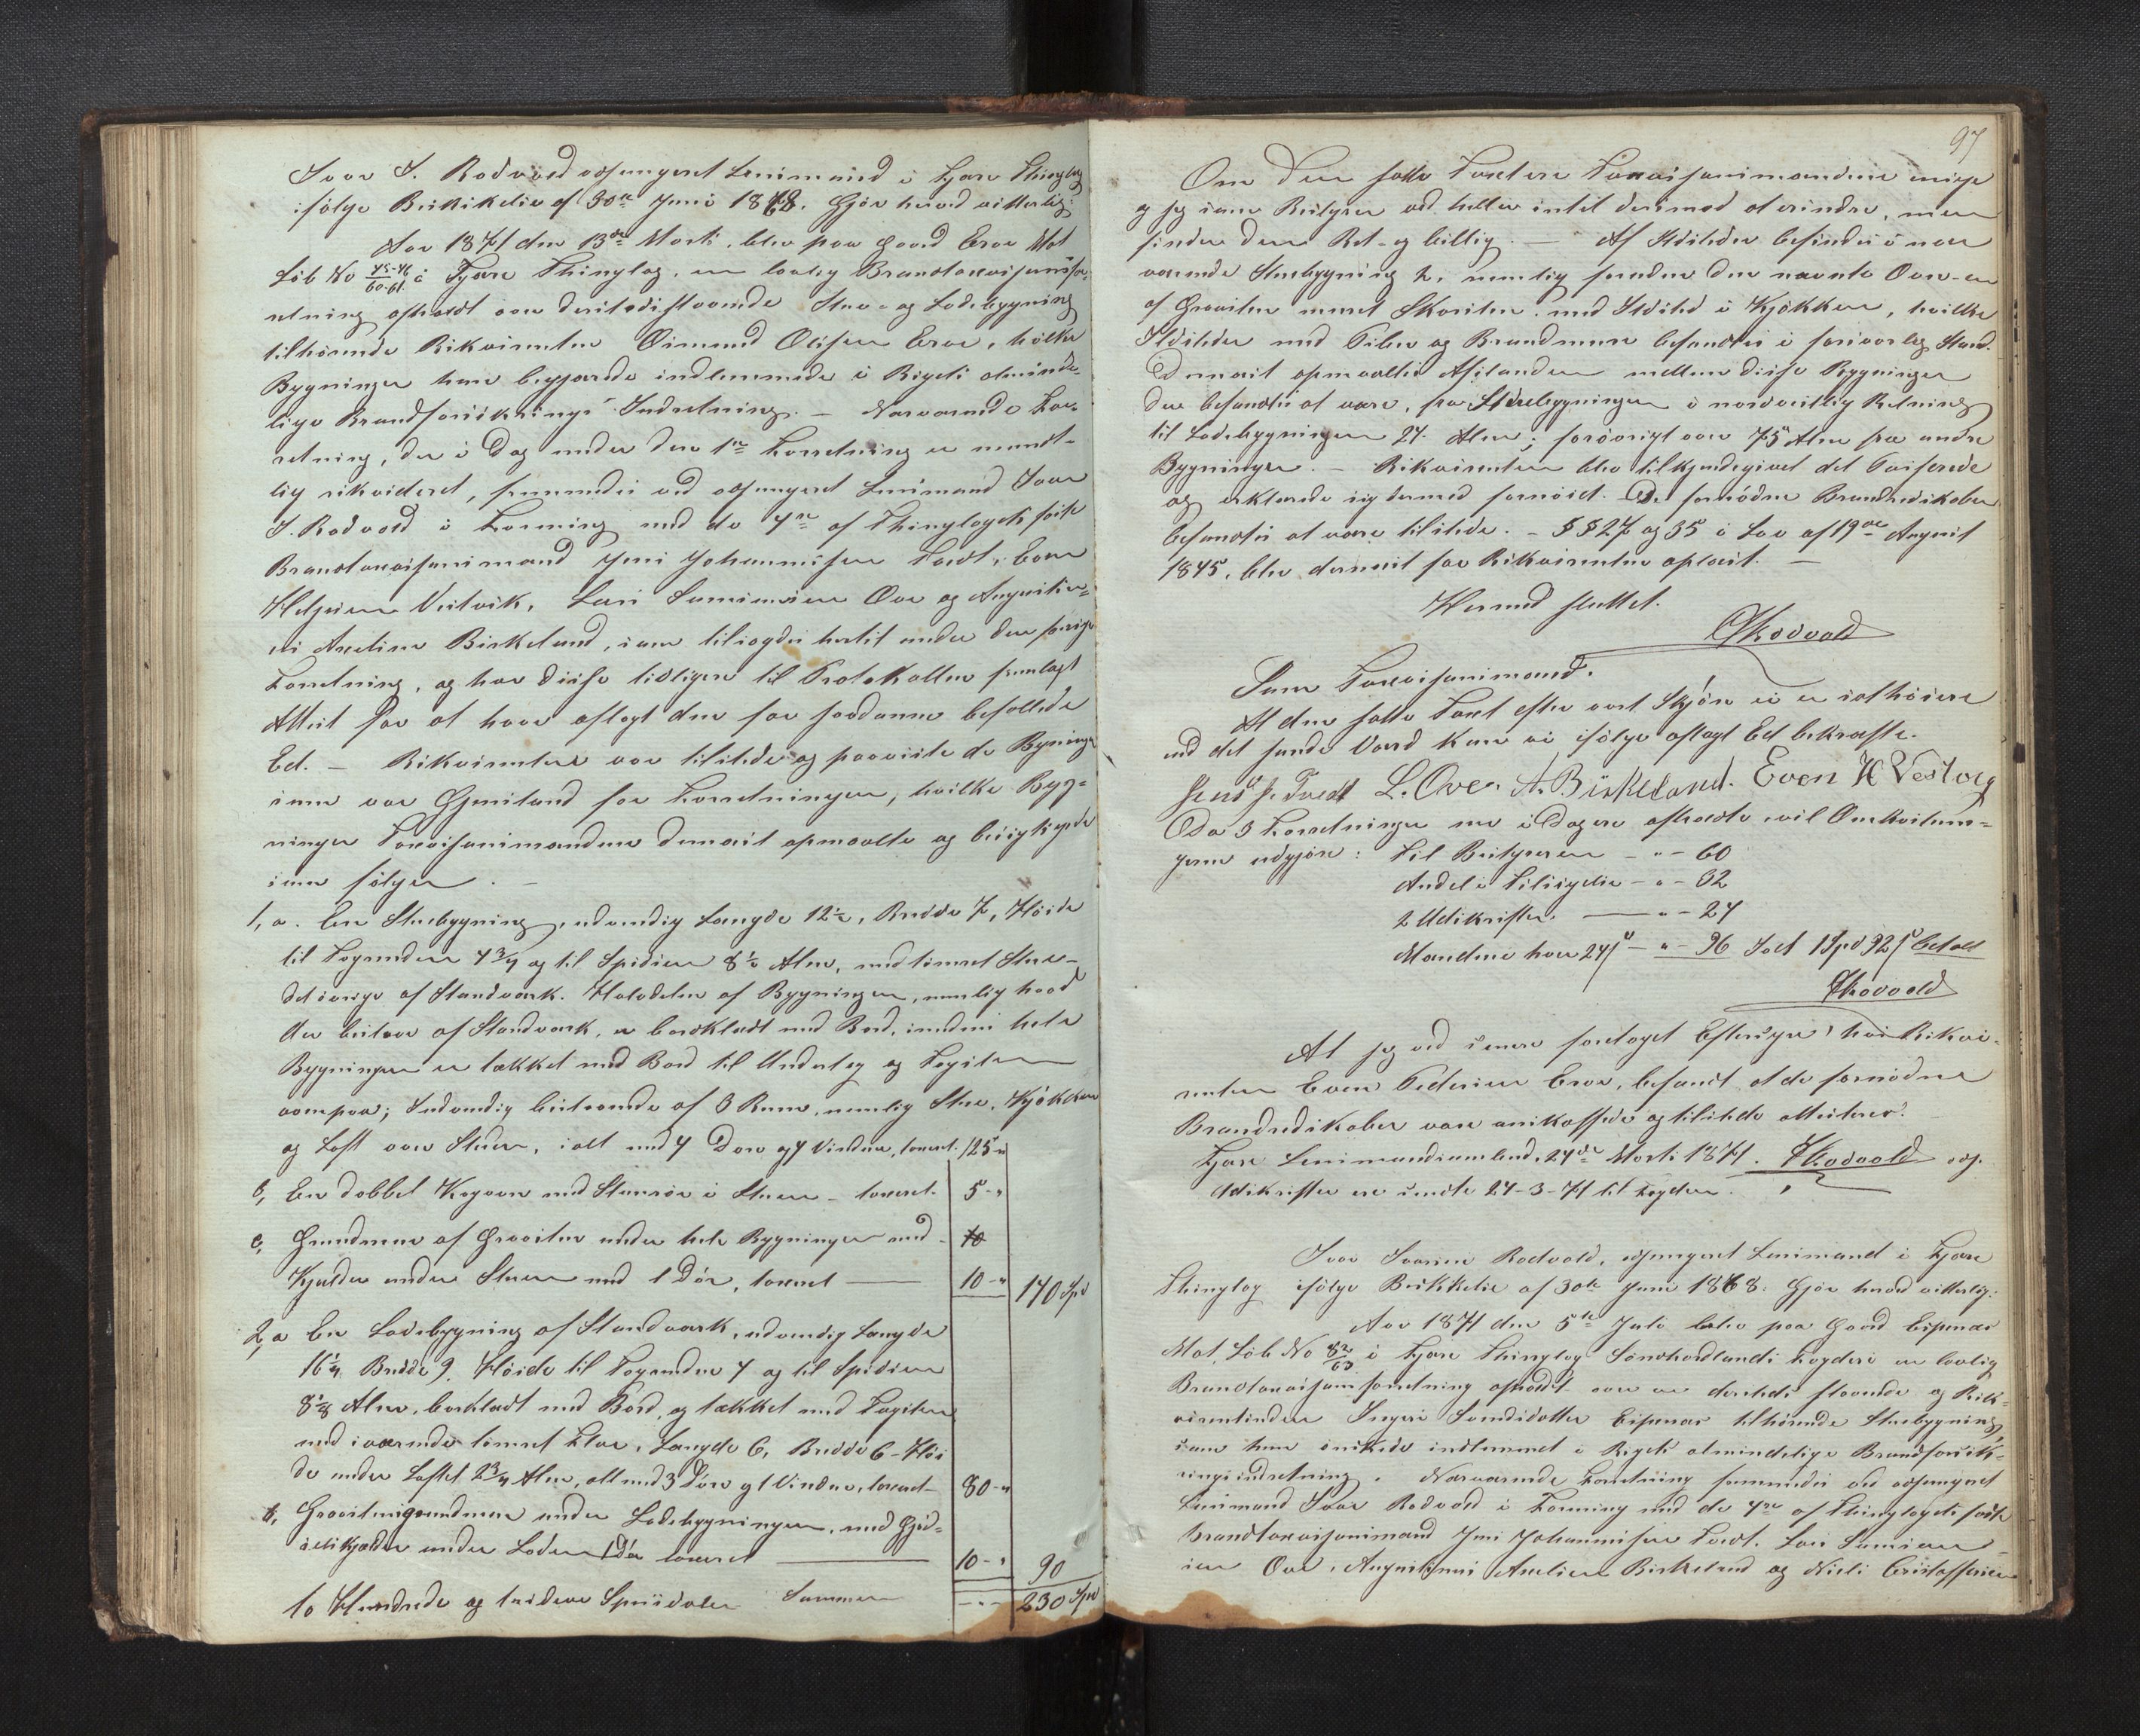 Ivar I. Rødvold adjungeret Lensmand i Fjære Thinglag
ifølge Bestikelse af 30te Juni 1868. Gjør herved vitterlig:
Aar 1871 den 13de Marts, blev paa Gaard Eroe Mat
Løb No 45-46/60-61 i Fjære Thinglag, en lovlig Brandtaxasjonsfor-
retning afholdt over dersteds staaende Stue- og Ladebygning
tilhørende Rikvirenten Øimund Olesen Eroe, hvilke
Bygninger han begjærede indlemmede i Rigets alminde-
lige Brandforsikrings Indretning. – Nærværende For-
retning, der i Dag under den 1ste Forretning er mundt-
lig rikvideret, fremmedes ved adjungeret Lensmand Ivar
I. Rødvold i Forening med de 4re af Thinglagets faste
Brandtaxasjonsmænd Jens Johannissen Tvedt, Even
Helgesen Vestvik, Lars Samsonsen Ove og Augustin-
us Axelsen Birkeland, som tilsagdes hertil under den forrige
Forretning, og har disse tidligere til Protokollen fremlagt
Attest for at have aflagt den for saadanne befallede
Ed. – Rikvirenten var tilstede og paaviste de Bygninger
som var Gjenstand for Forretningen, hvilke Byg-
ninger Taxasjonsmændene dernæst opmaalte og besigtigede
som følger. –
1, a. En Stuebygning, udvendig Længde 12½, Bredde 7, Høide
til Tagrenden 4¾ og til Spidsen 8½ Alen, med tømret Stue –
det øvrige af Standværk. Halvdelen af Bygningen, nemlig hvad
der bestaar af Standværk, er bordklædt med Bord, imedens hele
Bygningen er tækket med Bord til Underlag og Tagsten
ovenpaa; Indvendig bestaaende af 3 Rum, nemlig Stue, Kjøkken
og Loft over Stuen, i alt med 4 Døre og 4 Vinduer, taxeret. 125 „
b, En dobbel Kogeovn med Steenrør i Stuen – taxeret. 5 – „
c, Grundmuur af Graasten under hele Bygningen med – 10
Kjælder under Stuen med 1 Dør, taxeret — 10 – „ 140 Spd
2, a En Ladebygning af Standværk, udvendig Længde
16¼ Bredde 9. Høide til Tagrenden 4 og til Spidsen
8⅛ Alen, bordklædt med Bord, og tækket med Tagsten
med iværende tømret Floe, Længde 6, Bredde 6 – Høi
de under Loftet 2¾ Alen, alt med 3 Døre og 1 Vindue, taxeret – 80 – „
b, Graasteensgrundmur under Ladebygningen, med Gjød-
selskjælder under Laden 1 Dør taxeret — 10 – „ 90
to Hundrede og tredeve Speciedaler Summa – „ – 230 Spd
97
Om den satte Taxt ere Taxasjonsmændene enige
og jeg som Bestyrer ved heller intet derimod at erindre, men
finder den Ret- og billig. — Af Ildsteder befindes i nær
værende Stuebygning 2, nemlig foruden den nævnte Ovn – en
af Graasten muret Skorsten med Ildsted i Kjøkken, hvilke
Ildsteder med Piber og Brandmure befandtes i forsvarlig Stand.
Dernæst opmaaltes Afstanden mellem disse Bygninger
der befandtes at være, fra Stuebygningen i nordvestlig Retning
til Ladebygningen 24 Alen; forøvrigt over 75 Alen fra andre
Bygninger. – Rikvirenten blev tilkjendegivet det Passerede
og erklærede sig dermed fornøiet. De fornødne Brandredskaber
befandtes at være tilstede. – §§ 27 og 35 i Lov af 19de August
1845, blev dernæst for Rikvirenten oplæst. —
Hermed sluttet.
IRødvold
Som Taxasjonsmænd.
At den satte Taxt efter vort Skjøn ei er sat høiere
end det sande Værd kan vi ifølge aflagt Ed bekræfte.
Jens J. Tvedt L. Ove. A. Birkeland. Even H Vestvig
Da 3 Forretninger ere i Dag ere afholdte, vil Omkostnin-
gerne udgjøre: Til Bestyreren – „ – 60
Andel i Tilsigelse – „ – 32
2 Udskrifter. — „ – 24
Mændene hver 24 ß – „ – 96 Ialt 1 Spd 92 ß betalt
IRødvold
At jeg ved senere foretaget Eftersyn hos Rikvi-
renten Even Pedersen Eroe, befandt at de fornødne
Brandredskaber vare anskaffede og tilstede attesteres.
Fjære Lensmandsombud, 24de Marts 1871. IRødvold adj.
Udskrifter ere sendte 24-3-71 til Fogden.
Ivar Iversen Rødvold, adjungeret Lensmand i Fjære
Thinglag ifølge Beskikkelse af 30te Juni 1868. Gjør herved vitterlig:
Aar 1871 den 5te Juli blev paa Gaard Espenæs
Mat, Løb No 82/63 i Fjære Thinglag Søndhordlands Fogderi en lovlig
Brandtaxasjonsforretning afholdt over en dersteds staaende og Rik-
virentinden Ingeri Larsdatter Espenæs tilhørende Stuebygning,
som hun ønskede indlemmet i Rigets almindelige Brandforsik-
ringsindretning. Nærværende Forretning fremmedes ved adjungeret
Lensmand Ivar Rødvold i Forening med de 4re af Thinglagets faste
Brandtaxasjonsmænd Jens Johannissen Tvedt. Lars Samson-
sen Ove, Augustinus Axelsen Birkeland og Niels Cristoffersen